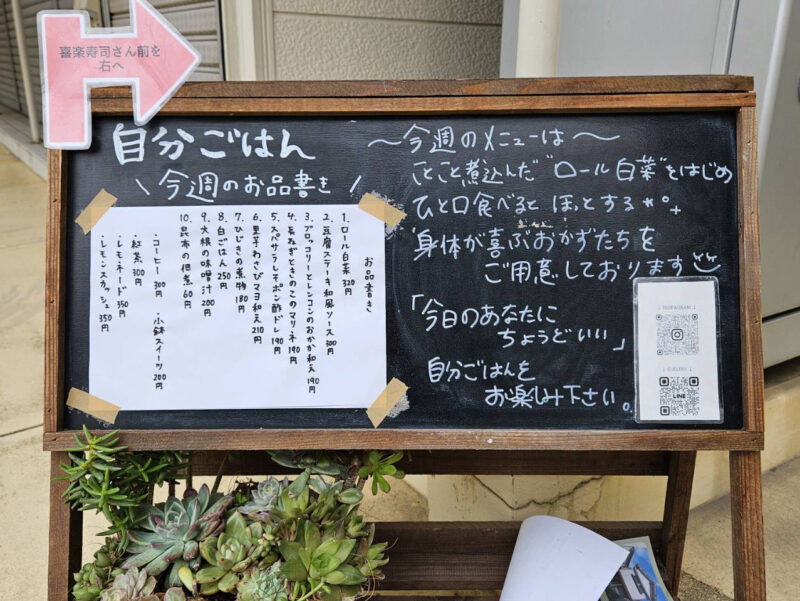 喜楽寿司さん前を
右へ
自分ごはん
\ 今週のお品書き /
お品書き
1. ロール白菜 320円
2. 豆腐ステーキ和風ソース 300円
3. ブロッコリーとレンコンのおかか和え 190円
4. 長ねぎときのこのマリネ 190円
5. スパサラレモポン酢ドレ 190円
6. 里芋わさびマヨ和え 210円
7. ひじきの煮物 180円
8. 白ごはん 250円
9. 大根の味噌汁 200円
10. 昆布の佃煮 60円
・コーヒー 300円
・小鉢スイーツ 200円
・紅茶 300円
・レモネード 350円
・レモンスカッシュ 350円
〜今週のメニューは〜
ことこと煮込んだ"ロール白菜"をはじめ
ひと口食べると ほっとする
身体が喜ぶおかずたちを
ご用意しております
「今日のあなたに
ちょうどいい」
自分ごはんを
お楽しみ下さい。
INSTAGRAM
LINE